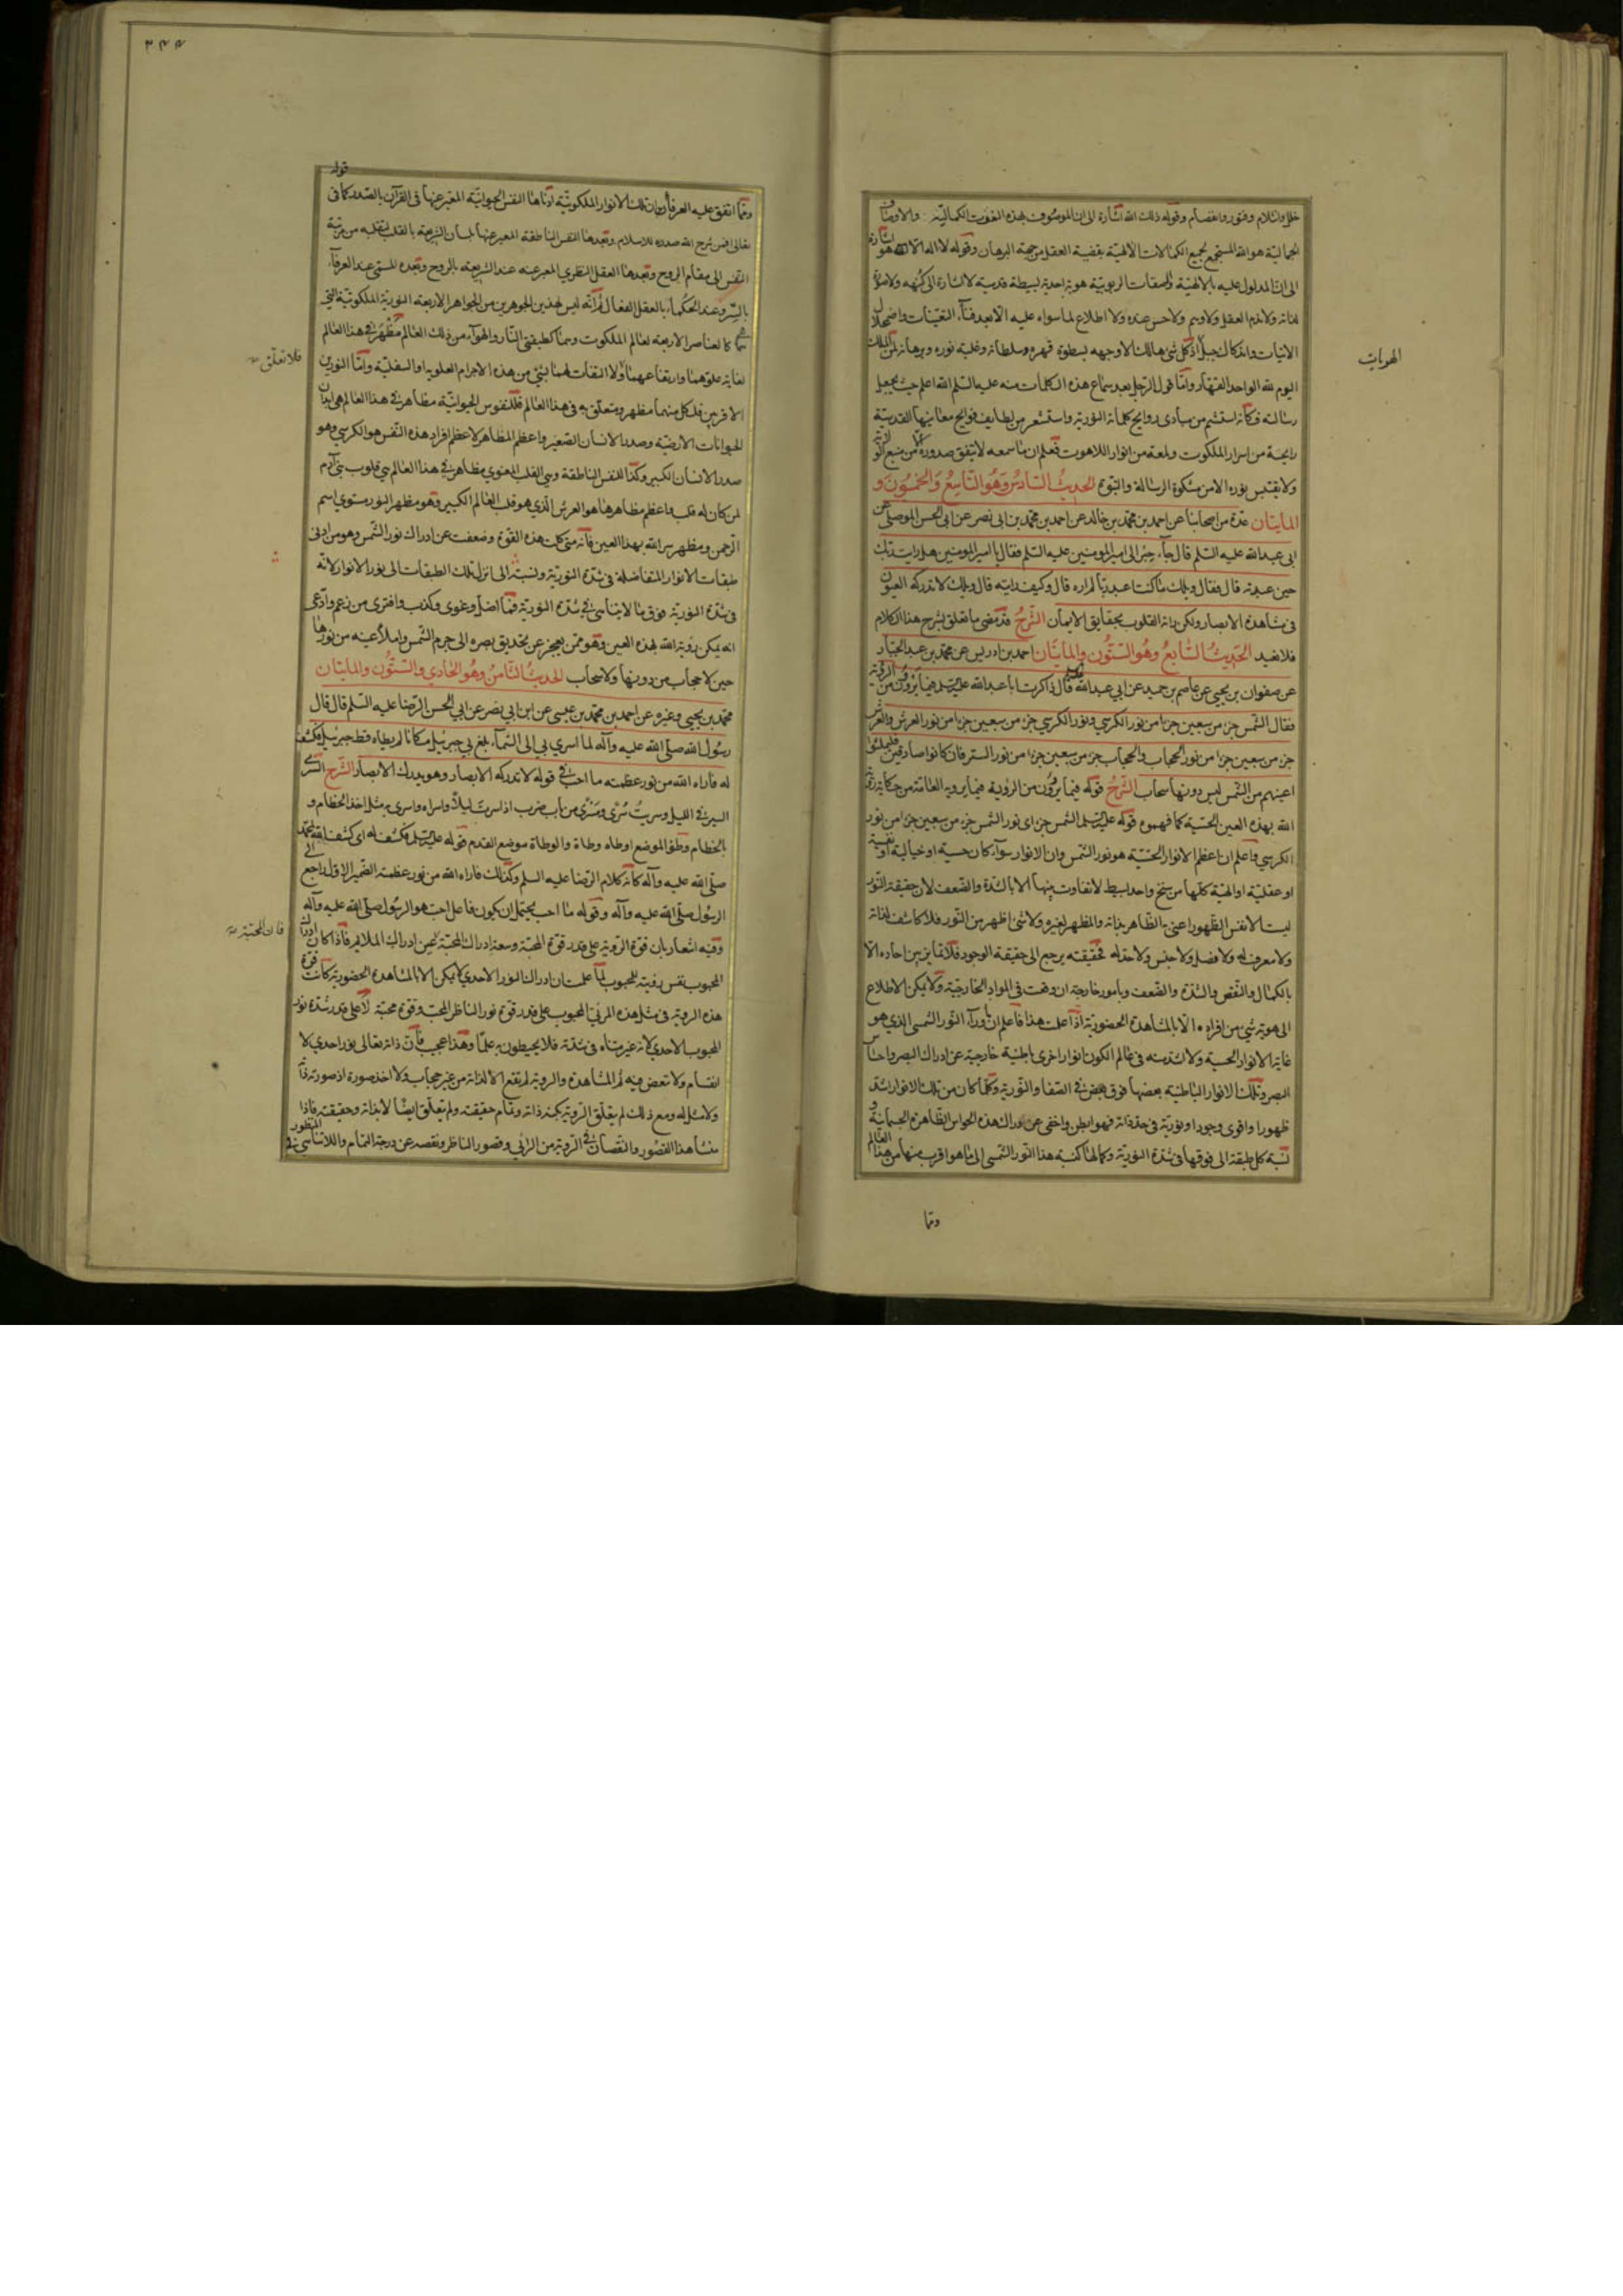 خلل وانثلام وفتور وانفصام وقوله ذلك الله اشارة الى ان الموصوف بهذه النعوت الكمالية والاوصاف
الجمالية هو الله المستجمع لجميع الكمالات الالهية بقضية العقل من جهة البرهان وقوله لا اله الا هو اشارة
الى ان المدلول عليه بالالهية والصفات الربوبية هوية احدية بسيطة قدسية لا اشارة الى كنهه ولا
لذاته ولا العقل ولا وسم ولا حس عنده ولا اطلاع لما سواه عليه الا بعد فناء التعينات واضمحلال
الانيات واندكاك جبل اذ كل شئ هالك الا وجهه بسطوة قهره وسلطانه وغلبة نوره وبرهانه لمن الملك
اليوم لله الواحد القهار واما قول الرجل بعد سماع هذه الكلمات منه عليه السلم الله اعلم حيث يجعل
رسالته فكأنه استشم من مبادى روايح كلماته النورية واستشعر من لطايف فوايح معانيها القدسية
رايحة من اسرار الملكوت ولمعة من انوار اللاهوت فعلم ان ما سمعه لا يتفق صدوره الا من منبع
ولا يقتبس نوره الا من مشكوة الرسالة والنبوة الحديث السادس وهو التاسع والخمسون و
المايتان عدة من اصحابنا عن احمد بن محمد بن خالد عن احمد بن محمد بن ابى نصر عن ابى الحسن الموصلى عن
ابى عبد الله عليه السلم قال جاء حبر الى امير المؤمنين عليه السلم فقال يا امير المؤمنين هل رايت ربك
حين عبدته قال فقال ويلك ما كنت اعبد ربا لم اره قال وكيف رايته قال ويلك لا تدركه العيون
فى مشاهدة الابصار ولكن راته القلوب بحقايق الايمان الشرح قد مضى ما تعلق بشرح هذا الكلام
فلا نعيد الحديث السابع وهو الستون والمايتان احمد بن ادريس عن محمد بن عبد الجبار
عن صفوان بن يحيى عن عاصم بن حميد عن ابى عبد الله عليه السلم قال ذاكرت ابا عبد الله عليه السلم فيما يروون من الرؤية
فقال الشمس جزء من سبعين جزءا من نور الكرسي ونور الكرسي جزء من سبعين جزءا من نور العرش والعرش
جزء من سبعين جزءا من نور الحجاب والحجاب جزء من سبعين جزءا من نور الستر فان كانوا صادقين فليملئوا
اعينهم من الشمس ليس دونها سحاب الشرح قوله فيما يروون من الرؤية فيما يرويه العامة من حكاية رؤية
الله بهذه العين الحسية كما فهموه قوله عليه السلم الشمس جزء اى نور الشمس جزء من سبعين جزءا من نور
الكرسي واعلم ان اعظم الانوار الحسية هو نور الشمس وان الانوار سواء كان حسية او خيالية او نفسية
او عقلية او الهية كلها من سنخ واحد بسيط لا تفاوت بينها الا بالشدة والضعف لان حقيقة النور
ليست الا نفس الظهور اعنى الظاهر بذاته والمظهر لغيره ولا شئ اظهر من النور فلا كاشف لذاته
ولا معرف له ولا فصل ولا جنس ولا حد له فحقيقته يرجع الى حقيقة الوجود فلا تمايز بين احاده الا
بالكمال والنقص والشدة والضعف وبامور خارجة ان وقعت فى المواد الخارجية ولا يمكن الاطلاع
الى هوية شئ من افراده الا بالمشاهدة الحضورية اذا علمت هذا فاعلم ان ما وراء النور الشمسى الذي هو
غاية الانوار الحسية ولا اشد منه فى عالم الكون انوار اخرى باطنية خارجية عن ادراك البصر واحساس
البصر وتلك الانوار الباطنية بعضها فوق بعض فى الصفا والنورية وكلما كان من تلك الانوار اشد
ظهورا واقوى وجودا ونورية فى حد ذاته فهو ابطن واخفى عن ادراك هذه الحواس الظاهرة الجسمانية و
نسبة كل طبقة الى فوقها فى شدة النورية وكمالها كنسبة هذا النور الشمسى الى ما هو اقرب منها من هذا العالم
وقد
الهويات
٢٤٤
قوله
ومما اتفق عليه العرفاء ان تلك الانوار الملكوتية ادناها النفس الحيوانية المعبر عنها فى القرآن بالصدر كما فى
تعالى افمن شرح الله صدره للاسلام وبعدها النفس الناطقة المعبر عنها بلسان الشريعة بالقلب لتقلبه من مرتبة
النفس الى مقام الروح وبعدها العقل النظري المعبر عنه عند الشريعة بالروح وبعده المسمى عند العرفاء
بالسر وعند الحكماء بالعقل الفعال ثم انه ليس لهذين الجوهرين من الجواهر الاربعة النورية الملكوتية التى
هى كالعناصر الاربعة لعالم الملكوت وهما كطبقتى النار والهواء من ذلك العالم مظهر فى هذا العالم
لغاية علوهما وارتفاعهما ولا التفات لهما بشئ من هذه الاجرام العلوية او السفلية واما النورين
الاخرين فلكل منهما مظهر ومتعلق به فى هذا العالم فللنفوس الحيوانية مظاهر فى هذا العالم هى ابدان
الحيوانات الارضية وصدر الانسان الصغير واعظم المظاهر لاعظم افراد هذه النفس هو الكرسي وهو
صدر الانسان الكبير وكذا للنفس الناطقة وهى القلب المعنوي مظاهر فى هذا العالم هي قلوب بنى آدم
لمن كان له قلب واعظم مظاهرها هو العرش الذي هو قلب العالم الكبير وهو مظهر النور مستوى اسم
الرحمن ومظهر سر الله بهذا العين فانه متى كلت هذه القوة وضعفت عن ادراك نور الشمس وهو من ادنى
طبقات الانوار المتفاضلة فى شدة النورية ونسبته الى انزل تلك الطبقات الى نور الانوار لانه
فى شدة النورية فوق ما لا يتناهى فى شدة النورية فما اضل وغوى وكذب وافترى من زعم وادعى
انه يمكن رؤية الله بهذه العين وهو ممن يعجز عن تحديق بصره الى جرم الشمس واملاء عينه من نورها
حين لا حجاب من دونها ولا سحاب الحديث الثامن وهو الحادي والستون والمايتان
محمد بن يحيى وغيره عن احمد بن محمد بن عيسى عن ابن ابى نصر عن ابى الحسن الرضا عليه السلم قال قال
رسول الله صلى الله عليه وآله لما اسري بي الى السماء بلغ بي جبرئيل مكانا لم يطاه قط جبرئيل فكشف
له فاراه الله من نور عظمته ما احب فى قوله لا تدركه الابصار وهو يدرك الابصار الشرح السرى
السير فى الليل وسريت سرى ومسرى من باب ضرب اذا سرت ليلا واسراه واسرى به مثل اخذ الخطام و
بالخطام وطئ الموضع اوطاه وطاة والوطاة موضع القدم قوله عليه السلم فكشف له اى كشف الله لمحمد
صلى الله عليه وآله كانه كلام الرضا عليه السلم وكذلك فاراه الله من نور عظمته الضمير الاول راجع الى
الرسول صلى الله عليه وآله وقوله ما احب يحتمل ان يكون فاعل احب هو الرسول صلى الله عليه وآله
وفيه اشعار بان قوة الروية على قدر قوة المحبة وسعة ادراك المحبة عين ادراك الملائم فاذا كان ادراك
المحبوب نفس رؤيته للمحبوب لما علمت ان ادراك النور الاحدي لا يمكن الا بالمشاهدة الحضورية كانت قوة
هذه الروية فى مثل هذه المرئي المحبوب على قدر قوة نور الناظر المحب وقوة محبته لا على قدر شدة نور
المحبوب الاحدي لانه غير متناه فى شدته فلا يحيطون به علما وهذا عجيب فان ذاته تعالى نور احدي لا
انقسام ولا تبعض فيه ثم المشاهدة والروية لم تقع الا لذاته من غير حجاب ولا اخذ صورة اذ صورة
ولا مثل له ومع ذلك لم يتعلق الروية بكنه ذاته وتمام حقيقته ولم يتعلق ايضا الا بذاته وحقيقته فاذا
منشأ هذا القصور والنقصان فى الروية من الرائي وقصور الناظر ونقصه عن درجة التمام واللاتناهى فى المنظور
فلا تعلق
فان المحبة